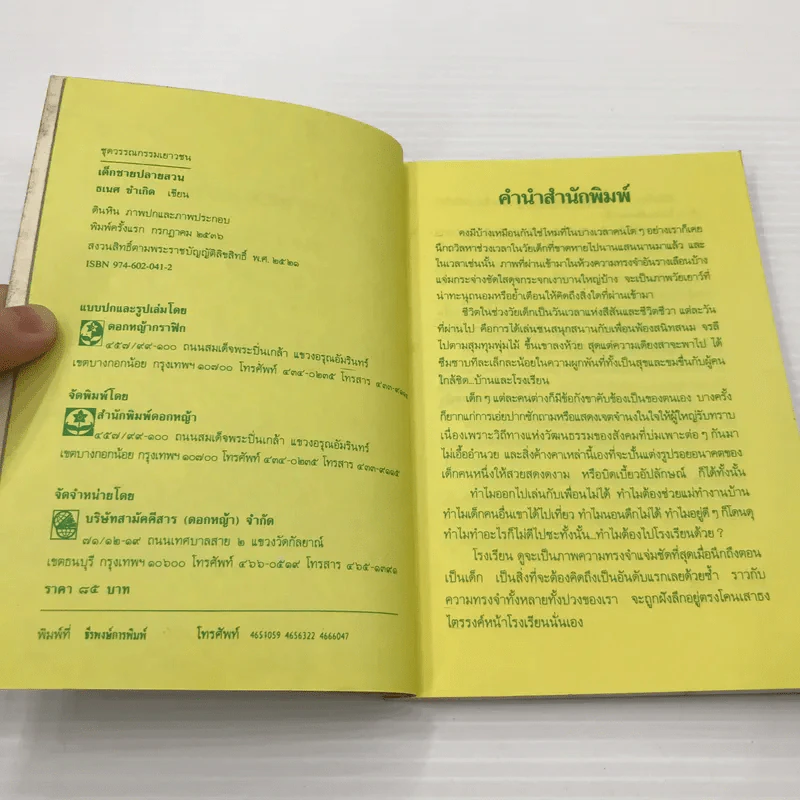 ชุดวรรณกรรมเยาวชน
เด็กชายปลายสวน
ธเนศ ขำเกิด เขียน
ตินหิน ภาพปกและภาพประกอบ
พิมพ์ครั้งแรก กรกฎาคม ๒๕๓๖
สงวนสิทธิ์ตามพระราชบัญญัติลิขสิทธิ์ พ.ศ. ๒๕๒๑
ISBN 974-602-041-2
แบบปกและรูปเล่มโดย
ดอกหญ้ากราฟิก
๔๕๗/๙๙-๑๐๐ ถนนสมเด็จพระปิ่นเกล้า แขวงอรุณอัมรินทร์
เขตบางกอกน้อย กรุงเทพฯ ๑๐๗๐๐ โทรศัพท์ ๔๓๔-๐๒๓๕ โทรสาร ๔๓๓-๙๑๑๕
จัดพิมพ์โดย
สำนักพิมพ์ดอกหญ้า
๔๕๗/๙๙-๑๐๐ ถนนสมเด็จพระปิ่นเกล้า แขวงอรุณอัมรินทร์
เขตบางกอกน้อย กรุงเทพฯ ๑๐๗๐๐ โทรศัพท์ ๔๓๔-๐๒๓๕ โทรสาร ๔๓๓-๙๑๑๕
จัดจำหน่ายโดย
บริษัทสามัคคีสาร (ดอกหญ้า) จำกัด
๗๑/๑๒-๑๙ ถนนเทศบาลสาย ๒ แขวงวัดกัลยาณ์
เขตธนบุรี กรุงเทพฯ ๑๐๖๐๐ โทรศัพท์ ๔๖๖-๐๕๑๙ โทรสาร ๔๖๕-๑๓๙๑
ราคา ๘๕ บาท
พิมพ์ที่ ธีรพงษ์การพิมพ์ โทรศัพท์ 4651059 4656322 4666047
คำนำสำนักพิมพ์
คงมีบ้างเหมือนกันใช่ไหมที่ในบางเวลาคนโต ๆ อย่างเราก็เคย
นึกถวิลหาช่วงเวลาในวัยเด็กที่ขาดหายไปนานแสนนานมาแล้ว และ
ในเวลาเช่นนั้น ภาพที่ผ่านเข้ามาในห้วงความทรงจำอันรางเลือนบ้าง
แจ่มกระจ่างชัดใสดุจกระจกเงาบานใหญ่บ้าง จะเป็นภาพวัยเยาว์ที่
น่าทะนุถนอมหรือย้ำเตือนให้คิดถึงสิ่งใดที่ผ่านเข้ามา
ชีวิตในช่วงวัยเด็กเป็นวันเวลาแห่งสีสันและชีวิตชีวา แต่ละวัน
ที่ผ่านไป คือการได้เล่นซนสนุกสนานกับเพื่อนพ้องสนิทสนม จรลี
ไปตามสุมทุมพุ่มไม้ ขึ้นเขาลงห้วย สุดแต่ความเดียงสาจะพาไป ได้
ซึมซาบทีละเล็กละน้อยในความผูกพันที่ทั้งเป็นสุขและชมชื่นกับผู้คน
ใกล้ชิด...บ้านและโรงเรียน
เด็ก ๆ แต่ละคนต่างก็มีข้อกังขาคับข้องเป็นของตนเอง บางครั้ง
ก็ยากแก่การเอ่ยปากซักถามหรือแสดงเจตจำนงในใจให้ผู้ใหญ่รับทราบ
เนื่องเพราะวิถีทางแห่งวัฒนธรรมของสังคมที่บ่มเพาะต่อ ๆ กันมา
ไม่เอื้ออำนวย และสิ่งค้างคาเหล่านี้เองที่จะปั้นแต่งรูปรอยอนาคตของ
เด็กคนหนึ่งให้สวยสดงดงาม หรือบิดเบี้ยวอัปลักษณ์ ก็ได้ทั้งนั้น
ทำไมออกไปเล่นกับเพื่อนไม่ได้ ทำไมต้องช่วยแม่ทำงานบ้าน
ทำไมเด็กคนอื่นเขาได้ไปเที่ยว ทำไมนอนดึกไม่ได้ ทำไมอยู่ดี ๆ ก็โดนดุ
ทำไมทำอะไรก็ไม่ดีไปซะทั้งนั้น...ทำไมต้องไปโรงเรียนด้วย ?
โรงเรียน ดูจะเป็นภาพความทรงจำแจ่มชัดที่สุดเมื่อนึกถึงตอน
เป็นเด็ก เป็นสิ่งที่จะต้องคิดถึงเป็นอันดับแรกเลยด้วยซ้ำ ราวกับ
ความทรงจำทั้งหลายทั้งปวงของเรา จะถูกฝังลึกอยู่ตรงโคนเสาธง
ไตรรงค์หน้าโรงเรียนนั่นเอง